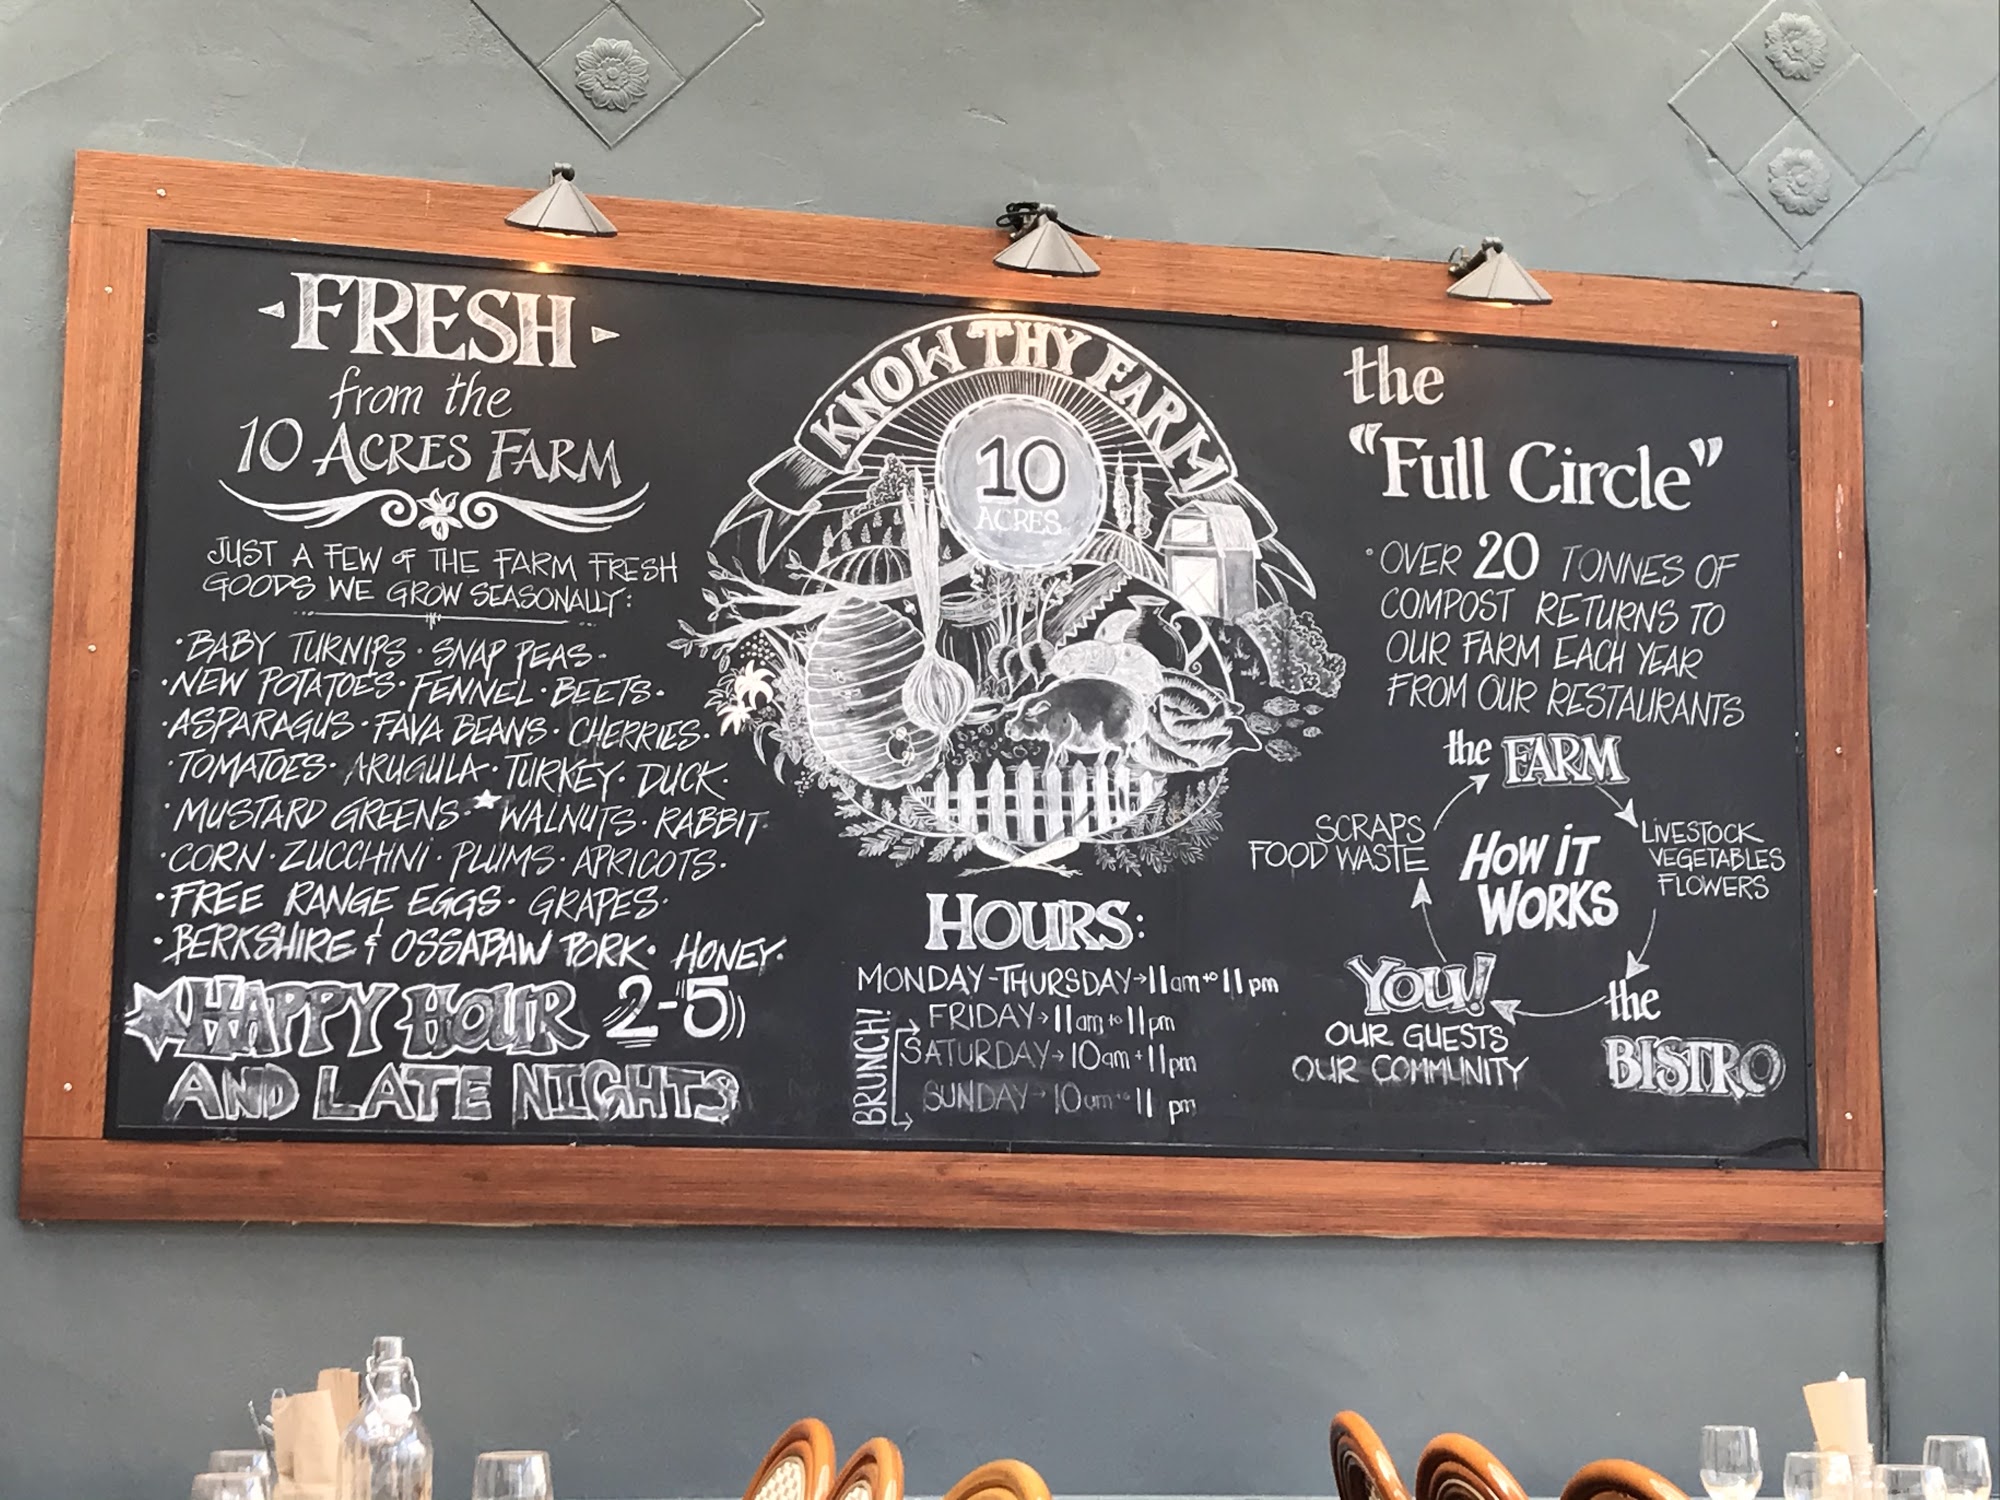 FRESH
from the
10 ACRES FARM
JUST A FEW of THE FARM FRESH
GOODS WE GROW SEASONALLY:
·BABY TURNIPS · SNAP PEAS·
·NEW POTATOES· FENNEL · BEETS·
·ASPARAGUS · FAVA BEANS · CHERRIES·
·TOMATOES· ARUGULA · TURKEY · DUCK·
·MUSTARD GREENS· WALNUTS · RABBIT·
·CORN · ZUCCHINI · PLUMS · APRICOTS·
·FREE RANGE EGGS · GRAPES·
·BERKSHIRE & OSSABAW PORK· HONEY·
HAPPY HOUR 2-5
AND LATE NIGHTS
KNOW THY FARM
10
ACRES
HOURS:
MONDAY-THURSDAY→11am to 11pm
FRIDAY→11am to 11pm
BRUNCH!
SATURDAY→10am + 11pm
SUNDAY→10am to 11 pm
the
"Full Circle"
·OVER 20 TONNES OF
COMPOST RETURNS TO
OUR FARM EACH YEAR
FROM OUR RESTAURANTS
the FARM
LIVESTOCK
VEGETABLES
FLOWERS
the
BISTRO
YOU!
OUR GUESTS
OUR COMMUNITY
SCRAPS
FOOD WASTE
HOW IT
WORKS